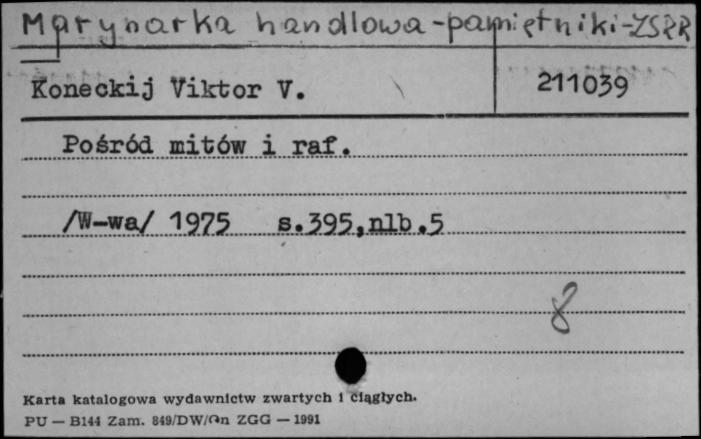 Marynarka handlowa-pamiętniki-ZSRR
Koneckij Viktor V.
211039
Pośród mitów i raf.
/W-wa/ 1975 s.395,nlb.5
8
Karta katalogowa wydawnictw zwartych i ciągłych.
PU — B144 Zam. 849/DW/ ZGG — 1991